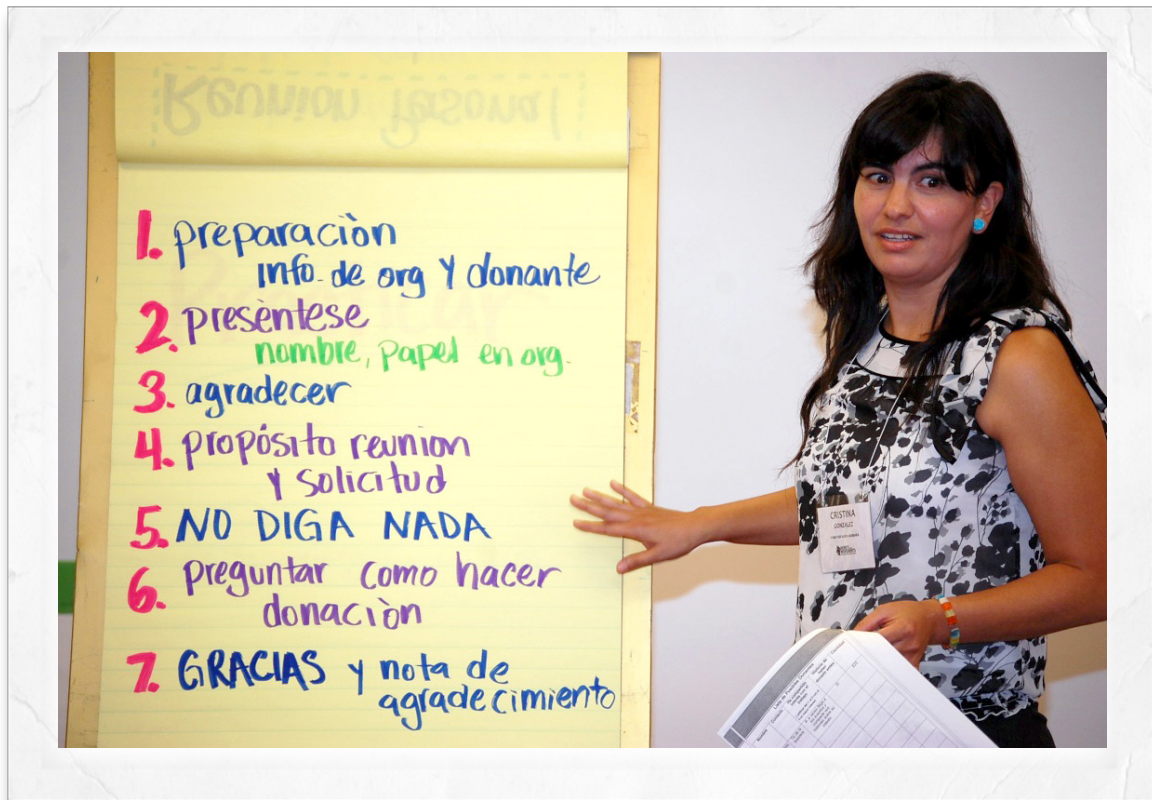 Reunion Personal
1. preparaciòn
info. de org Y donante
2. presèntese
nombre, papel en org.
3. agradecer
4. propósito reunion
Y solicitud
5. NO DIGA NADA
6. preguntar como hacer
donaciòn
7. GRACIAS y nota de
agradecimiento
CRISTINA
GONZALEZ